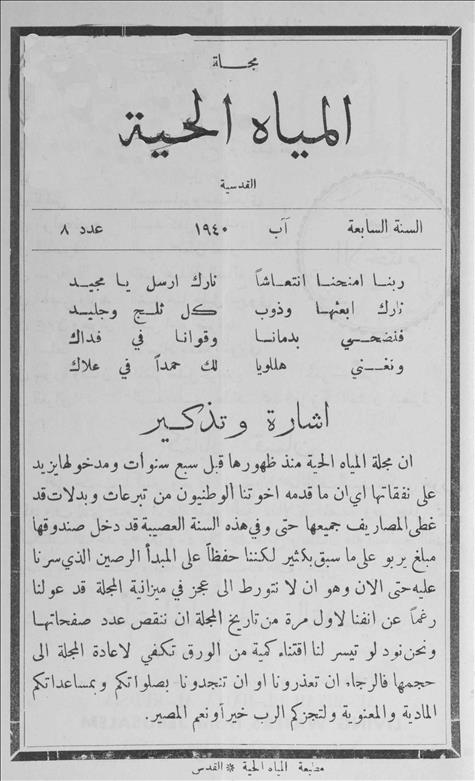 مجلة
المياه الحية
القدسية
السنة السابعة آب ١٩٤٠ عدد ٨
ربنا امنحنا انتعاشاً نارك ارسل يا مجيد
نارك ابعثها وذوب كل ثلج وجليد
فنضحي بدمانا وقوانا في فداك
ونغني هللويا لك حمداً في علاك
اشارة وتذكير
ان مجلة المياه الحية منذ ظهورها قبل سبع سنوأت ومدخولها يزيد
على نفقاتها اي ان ما قدمه اخوتنا ألوطنيون من تبرعات وبدلات قد
غطى المصاريف جميعها حتى وفي هذه السنة العصيبة قد دخل صندوقها
مبلغ يربو على ما سبق بكثير لكننا حفظاً على المبدأ الرصين الذي سرنا
عليه حتى الان وهو ان لا نتورط الى عجز في ميزانية المجلة قد عولنا
رغماً عن انفنا لاول مرة من تاريخ المجلة ان ننقص عدد صفحاتها
ونحن نود لو تيسر لنا اقتناء كمية من الورق تكفي لاعادة المجلة الى
حجمها فالرجاء ان تعذرونا او ان تنجدونا بصلواتكم وبمساعداتكم
المادية والمعنوية ولتجزكم الرب خير أو نعم المصير.
مطبعة المياه الحية * القدس